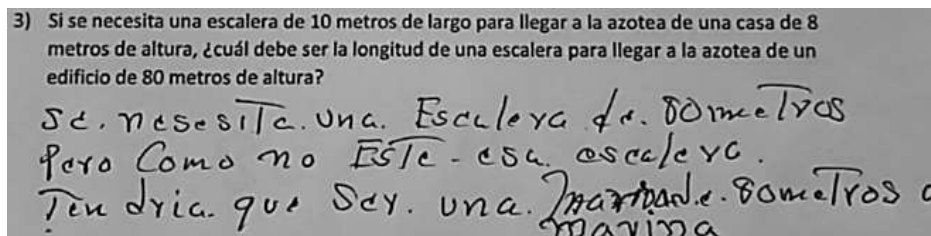 3) Si se necesita una escalera de 10 metros de largo para llegar a la azotea de una casa de 8
metros de altura, ¿cuál debe ser la longitud de una escalera para llegar a la azotea de un
edificio de 80 metros de altura?
Se. nesesiTa. una. Escalera de. 80 meTros
Pero Como no ESTe - esa. escalera.
Ten dria. que Ser. una. de. 80 meTros
marina